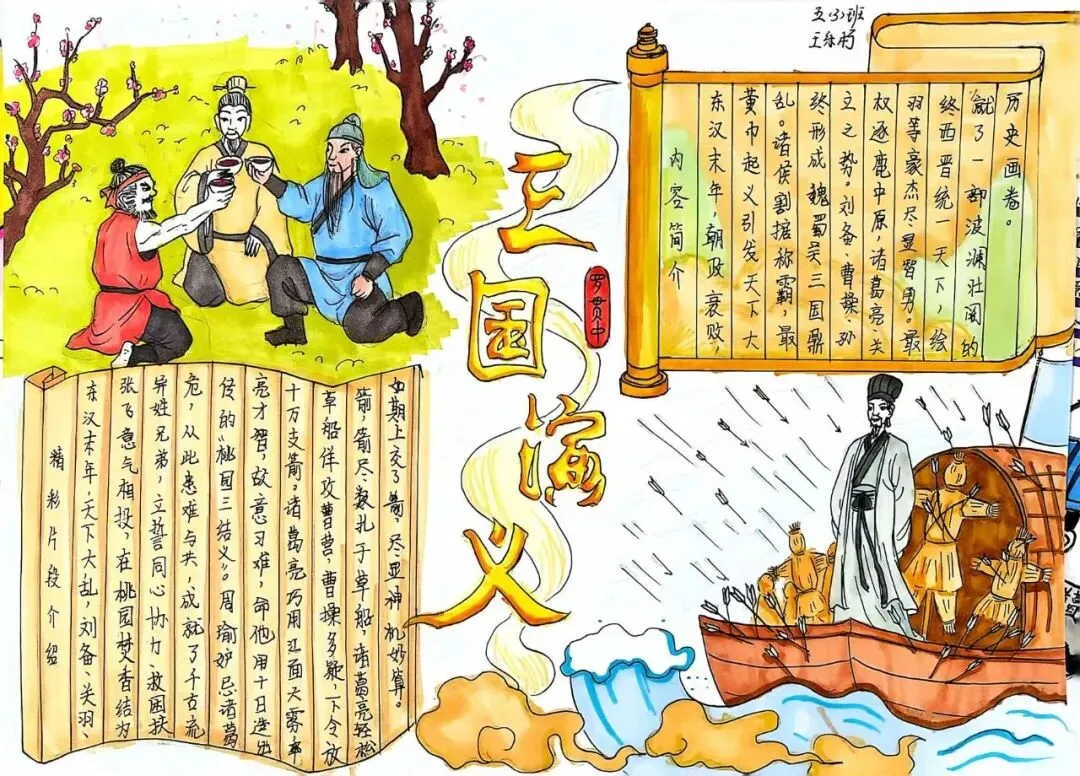 五(3)班
三国演义
罗贯中
内容简介
东汉末年,朝政衰败,
黄巾起义引发天下大
乱。诸侯割据称霸,最
终形成魏蜀吴三国鼎
立之势。刘备、曹操、孙
权逐鹿中原,诸葛亮、关
羽等豪杰尽显智勇。最
终西晋统一天下,绘
就了一部波澜壮阔的
历史画卷。
精彩片段介绍
东汉末年,天下大乱,刘备、关羽、
张飞意气相投,在桃园焚香结为
异姓兄弟,立誓同心协力、救困扶
危,从此患难与共,成就了千古流
传的“桃园三结义”。周瑜妒忌诸葛
亮才智,故意习难,命他用十日造出
十万支箭。诸葛亮巧用江面大雾,率
草船佯攻曹营,曹操多疑,下令放
箭,箭尽数扎于草船,诸葛亮轻松
如期上交了箭,尽显神机妙算。